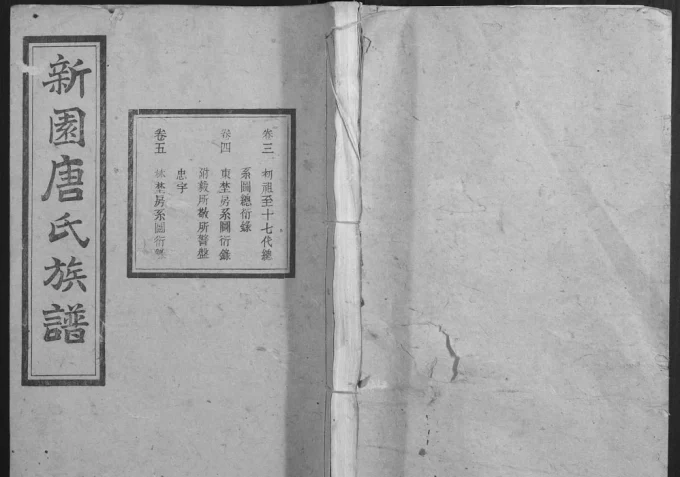 新園唐氏族譜
卷三 初祖至十七代總
系圖總衍錄
卷四 東埜房系圖衍錄
附毅所敬所醫盤
忠字
卷五 林埜房系圖衍